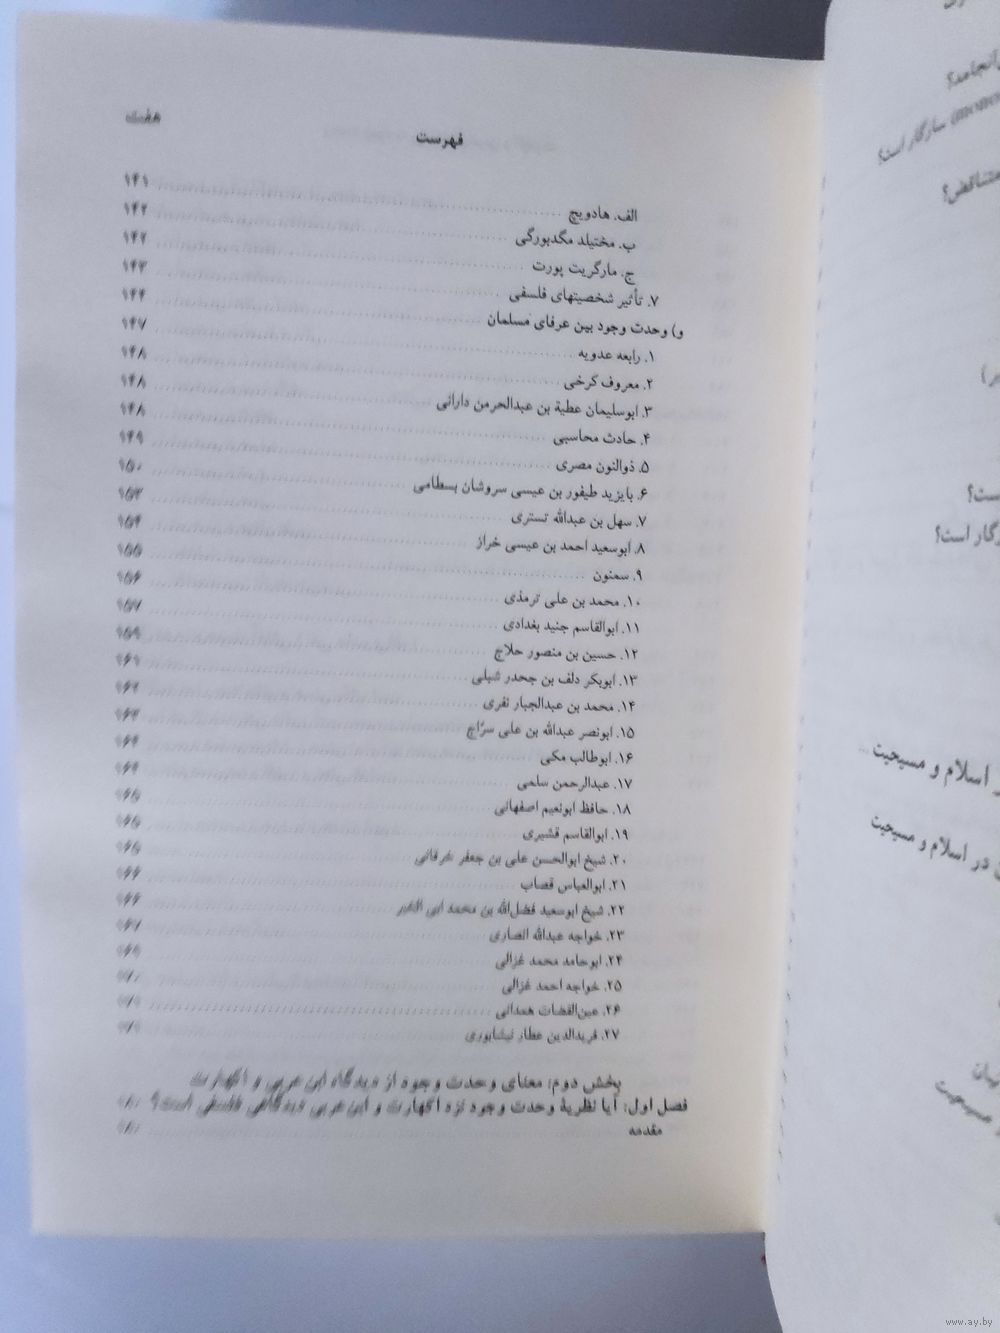 هفت
فهرست
الف. هادویچ ۱۴۱
ب. مختیلد مگدبورگی ۱۴۲
ج. مارگریت پورت ۱۴۲
۷. تأثیر شخصیتهای فلسفی ۱۴۳
و) وحدت وجود بین عرفای مسلمان ۱۴۴
۱. رابعه عدویه ۱۴۷
۲. معروف کرخی ۱۴۸
۳. ابوسلیمان عطیة بن عبدالحرمن دارانی ۱۴۸
۴. حادث محاسبی ۱۴۸
۵. ذوالنون مصری ۱۴۹
۶. بایزید طیفور بن عیسی سروشان بسطامی ۱۵۰
۷. سهل بن عبدالله تستری ۱۵۳
۸. ابوسعید احمد بن عیسی خراز ۱۵۴
۹. سمنون ۱۵۵
۱۰. محمد بن علی ترمذی ۱۵۶
۱۱. ابوالقاسم جنید بغدادی ۱۵۷
۱۲. حسین بن منصور حلاج ۱۵۹
۱۳. ابوبکر دلف بن جحدر شبلی ۱۶۱
۱۴. محمد بن عبدالجبار نفری ۱۶۲
۱۵. ابونصر عبدالله بن علی سرّاج
۱۶. ابوطالب مکی ۱۶۴
۱۷. عبدالرحمن سلمی ۱۶۴
۱۸. حافظ ابونعیم اصفهانی ۱۶۵
۱۹. ابوالقاسم قشیری ۱۶۵
۲۰. شیخ ابوالحسن علی بن جعفر خرقانی ۱۶۵
۲۱. ابوالعباس قصاب ۱۶۶
۲۲. شیخ ابوسعید فضل‌الله بن محمد ابی الخیر ۱۶۶
۲۳. خواجه عبدالله انصاری
۲۴. ابوحامد محمد غزالی
۲۵. خواجه احمد غزالی
۲۶. عین‌القضات همدانی
۲۷. فریدالدین عطار نیشابوری
بخش دوم: معنای وحدت وجود از دیدگاه ابن عربی و اکهارت
فصل اول: آیا نظریهٔ وحدت وجود نزد اکهارت و ابن عربی دیدگاهی فلسفی است؟
مقدمه
سازگار است؟
متناقض؟
است؟
اسلام و مسیحیت
در اسلام و مسیحیت
مسیحیت
www.ay.by